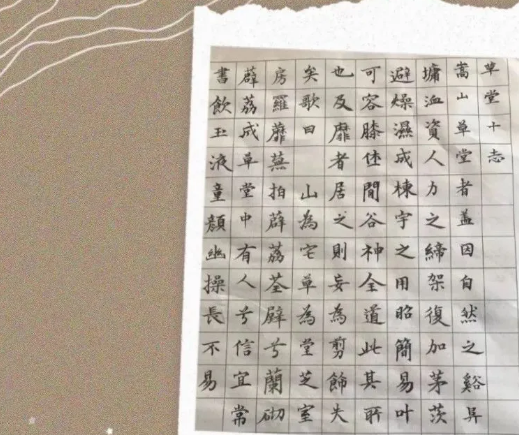 草堂十志
嵩山草堂者盖因自然之谿阜
墉洫資人力之締架復加茅茨
避燥濕成棟宇之用昭簡易叶
可容膝休閒谷神全道此其所
也及靡者居之則妄為剪飾失
矣歌曰 山為宅草為堂芝室
房羅蘼蕪拍薜荔荃壁兮蘭砌
薜荔成草堂中有人兮信宜常
書飲玉液童顏幽操長不易